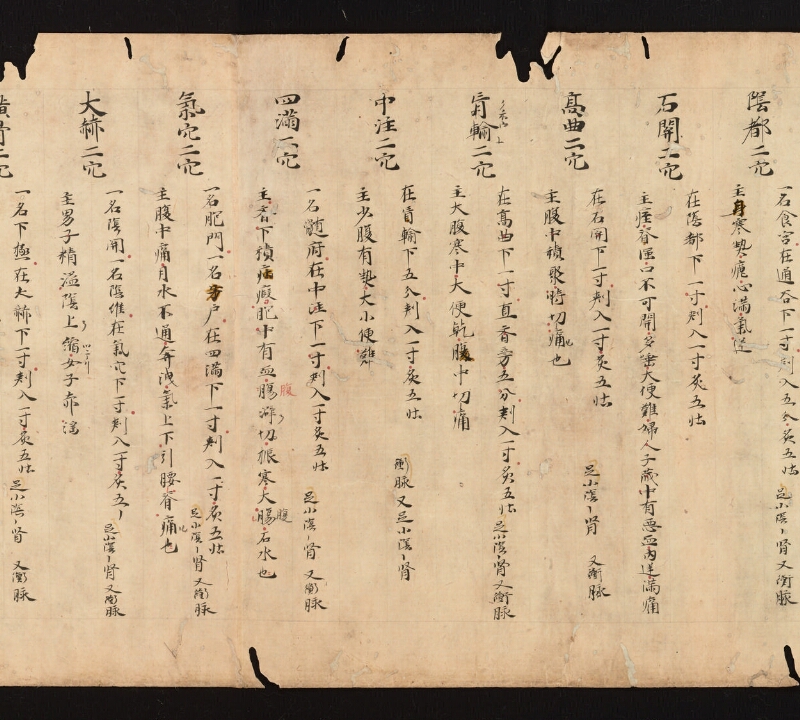 陰都二穴
一名食宮在通谷下一寸刾入五分灸五壮 足小陰〻腎 又衝脉
主身寒熱瘧心満氣逆
石開二穴
在陰都下一寸刾入一寸灸五壮
主痓脊強口不可開多唾大便難婦人子蔵中有悪血内逆満痛
高曲二穴
在石開下一寸刾入一寸灸五壮 足小陰〻腎 又衝脉
主腹中積聚時切痛也
肓輸二穴
在高曲下一寸直齊旁五分刾入一寸灸五壮 足小陰〻腎又衝脉
主大腹寒中大便乾腹中切痛
中注二穴
在肓輸下五分刾入一寸灸五壮 衝脉又足小陰〻腎
主少腹有熱大小便難
四満二穴
一名髄府在中注下一寸刾入一寸灸五壮 足小陰〻腎 又衝脉
主齊下積疝瘕胞中有血腸澼切振寒大腸石水也
腹
腹
氣穴二穴
一名肥門一名旁户在四満下一寸刾入一寸灸五壮 足小陰〻腎 又衝脉
主腹中痛月水不通奔洩氣上下引腰脊痛也
大赫二穴
一名陰開一名陰維在氣穴下一寸刾入一寸灸五〻 足小陰〻腎 又衝脉
主男子精溢陰上縮女子赤淫
横骨二穴
一名下極在大赫下一寸刾入一寸灸五壮 足小陰〻腎 又衝脉